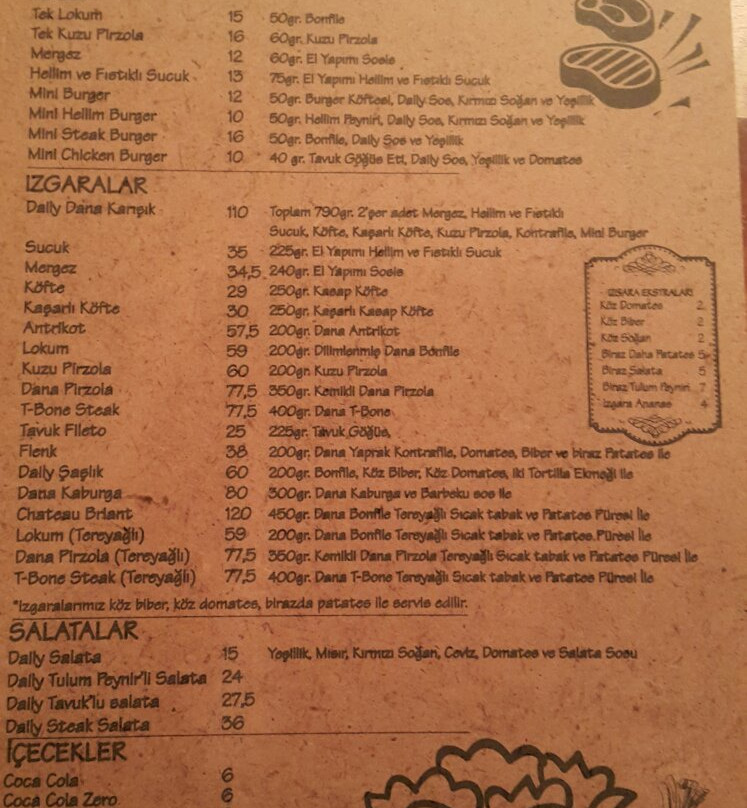 Tek Lokum 15 50gr. Bonfile
Tek Kuzu Pirzola 16 60gr. Kuzu Pirzola
Mergez 12 60gr. El Yapımı Sosis
Hellim ve Fıstıklı Sucuk 13 75gr. El Yapımı Hellim ve Fıstıklı Sucuk
Mini Burger 12 50gr. Burger Köftesi, Dally Sos, Kırmızı Soğan ve Yeşillik
Mini Hellim Burger 10 50gr. Hellim Peyniri, Dally Sos, Kırmızı Soğan ve Yeşillik
Mini Steak Burger 16 50gr. Bonfile, Dally Sos ve Yeşillik
Mini Chicken Burger 10 40 gr. Tavuk Göğüs Eti, Dally Sos, Yeşillik ve Domates
IZGARALAR
Dally Dana Karışık 110 Toplam 790gr. 2'şer adet Mergez, Hellim ve Fıstıklı
Sucuk, Köfte, Kaşarlı Köfte, Kuzu Pirzola, Kontrafile, Mini Burger
Sucuk 35 225gr. El Yapımı Hellim ve Fıstıklı Sucuk
Mergez 34,5 240gr. El Yapımı Sosis
Köfte 29 250gr. Kasap Köfte
Kaşarlı Köfte 30 250gr. Kaşarlı Kasap Köfte
Antrikot 57,5 200gr. Dana Antrikot
Lokum 59 200gr. Dilimlenmiş Dana Bonfile
Kuzu Pirzola 60 200gr. Kuzu Pirzola
Dana Pirzola 77,5 350gr. Kemikli Dana Pirzola
T-Bone Steak 77,5 400gr. Dana T-Bone
Tavuk Fileto 25 225gr. Tavuk Göğüs
Flenk 38 200gr. Dana Yaprak Kontrafile, Domates, Biber ve biraz Patates ile
Dally Şaşlık 60 200gr. Bonfile, Köz Biber, Köz Domates, iki Tortilla Ekmeği ile
Dana Kaburga 80 300gr. Dana Kaburga ve Barbekü sos ile
Chateau Briant 120 450gr. Dana Bonfile Tereyağlı Sıcak tabak ve Patates Püresi ile
Lokum (Tereyağlı) 59 200gr. Dana Bonfile Tereyağlı Sıcak tabak ve Patates Püresi ile
Dana Pirzola (Tereyağlı) 77,5 350gr. Kemikli Dana Pirzola Tereyağlı Sıcak tabak ve Patates Püresi ile
T-Bone Steak (Tereyağlı) 77,5 400gr. Dana T-Bone Tereyağlı Sıcak tabak ve Patates Püresi ile
*Izgaralarımız köz biber, köz domates, birazda patates ile servis edilir.
IZGARA EKSTRALARI
Köz Domates 2
Köz Biber 2
Köz Soğan 2
Biraz Daha Patates 5
Biraz Salata 5
Biraz Tulum Peyniri 7
Izgara Ananas 4
SALATALAR
Dally Salata 15 Yeşillik, Mısır, Kırmızı Soğan, Ceviz, Domates ve Salata Sosu
Dally Tulum Peynir'li Salata 24
Dally Tavuk'lu salata 27,5
Dally Steak Salata 36
İÇECEKLER
Coca Cola 6
Coca Cola Zero 6